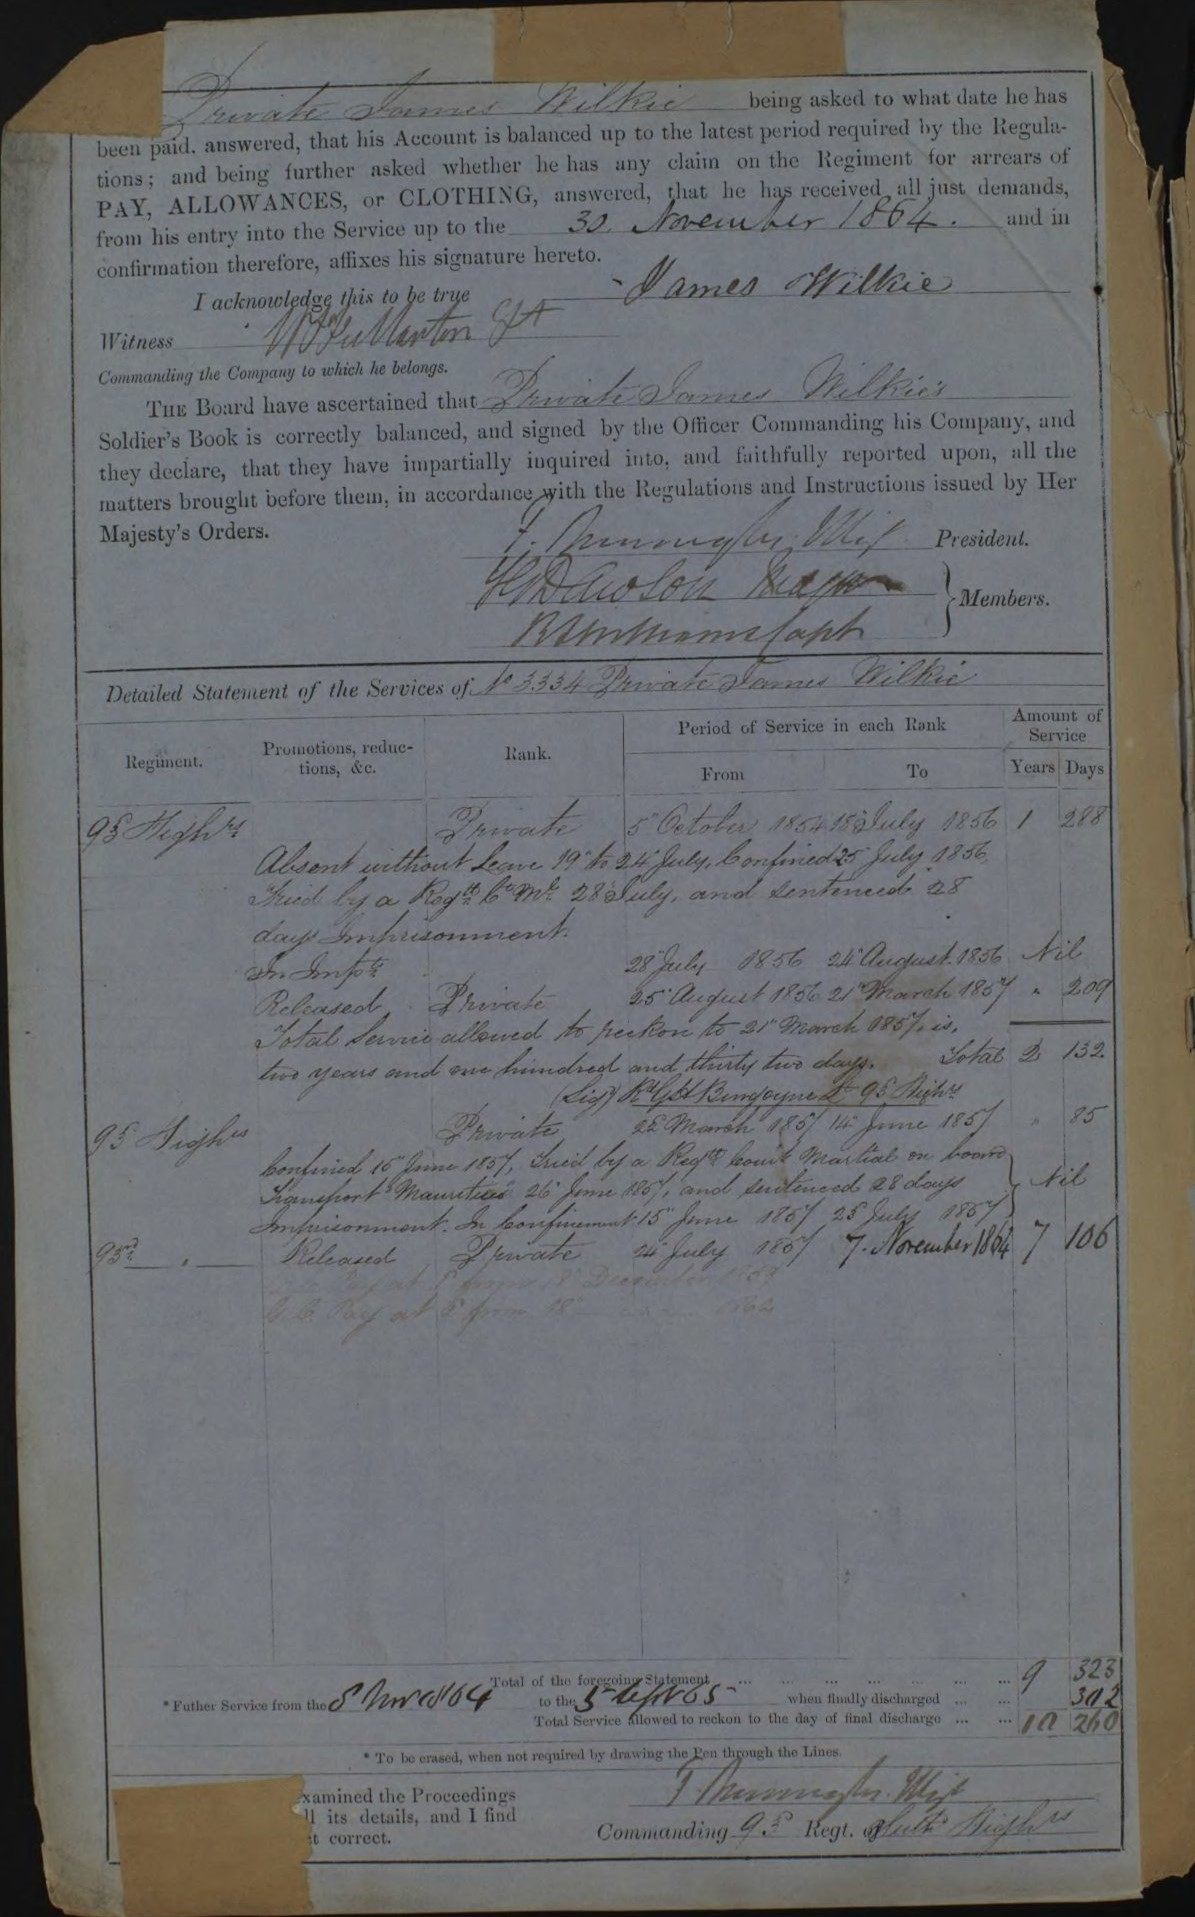 Private James Wilkie being asked to what date he has
been paid, answered, that his Account is balanced up to the latest period required by the Regula-
tions; and being further asked whether he has any claim on the Regiment for arrears of
PAY, ALLOWANCES, or CLOTHING, answered, that he has received all just demands,
from his entry into the Service up to the 30 November 1864. and in
confirmation therefore, affixes his signature hereto.
I acknowledge this to be true James Wilkie
Witness
Commanding the Company to which he belongs.
THE Board have ascertained that Private James Wilkie's
Soldier's Book is correctly balanced, and signed by the Officer Commanding his Company, and
they declare, that they have impartially inquired into, and faithfully reported upon, all the
matters brought before them, in accordance with the Regulations and Instructions issued by Her
Majesty's Orders.
President.
Dawson Major
Members.
Capt
Detailed Statement of the Services of No 3334 Private James Wilkie
Regiment. Promotions, reduc-tions, &c. Rank. Period of Service in each Rank Amount of Service
From To Years Days
93 Highrs Private 5" October 1854 18 July 1856 1 288
Absent without Leave 19" to 24" July, Confined 25" July 1856
Tried by a Regtl Ct Ml 28 July, and sentenced 28
days Imprisonment.
In Impt 28" July 1856 24" August 1856 Nil
Released Private 25" August 1856 21" March 1857 " 209
Total Service allowed to reckon to 21" March 1857, is,
two years and one hundred and thirty two days. Total 2 132
93 Highrs Private 22 March 1857 14" June 1857 " 85
Confined 15" June 1857, Tried by a Regtl Court Martial on board
Transport "Mauritius" 26" June 1857, and sentenced 28 days Nil
Imprisonment. In Confinement 15" June 1857 23 July 1857
93rd " Released Private 24" July 1857 7. November 1864 7 106
Pay at from 18" December 1859
G.C. Pay at from 18" 1862
Total of the foregoing Statement ... 9 323
* Futher Service from the 8 Nov 1864 to the 5 Sept 65 when finally discharged ... 302
Total Service allowed to reckon to the day of final discharge ... 10 260
* To be erased, when not required by drawing the Pen through the Lines.
xamined the Proceedings
ll its details, and I find
t correct.
Commanding 93 Regt. of Suthd Highrs